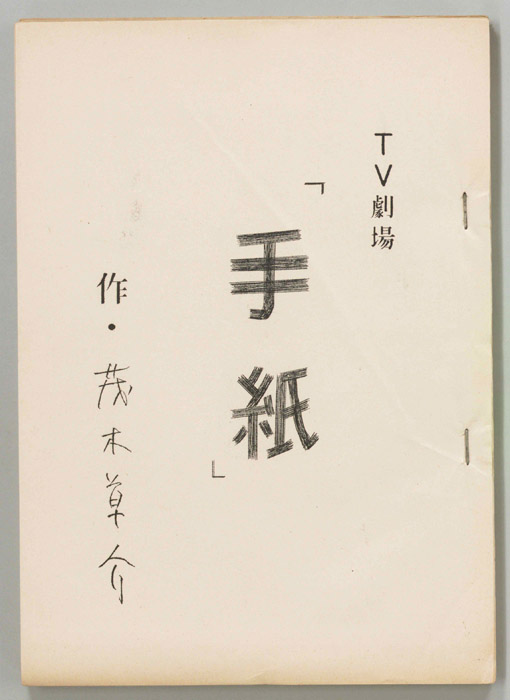 TV劇場
「手紙」
作・茂木草介